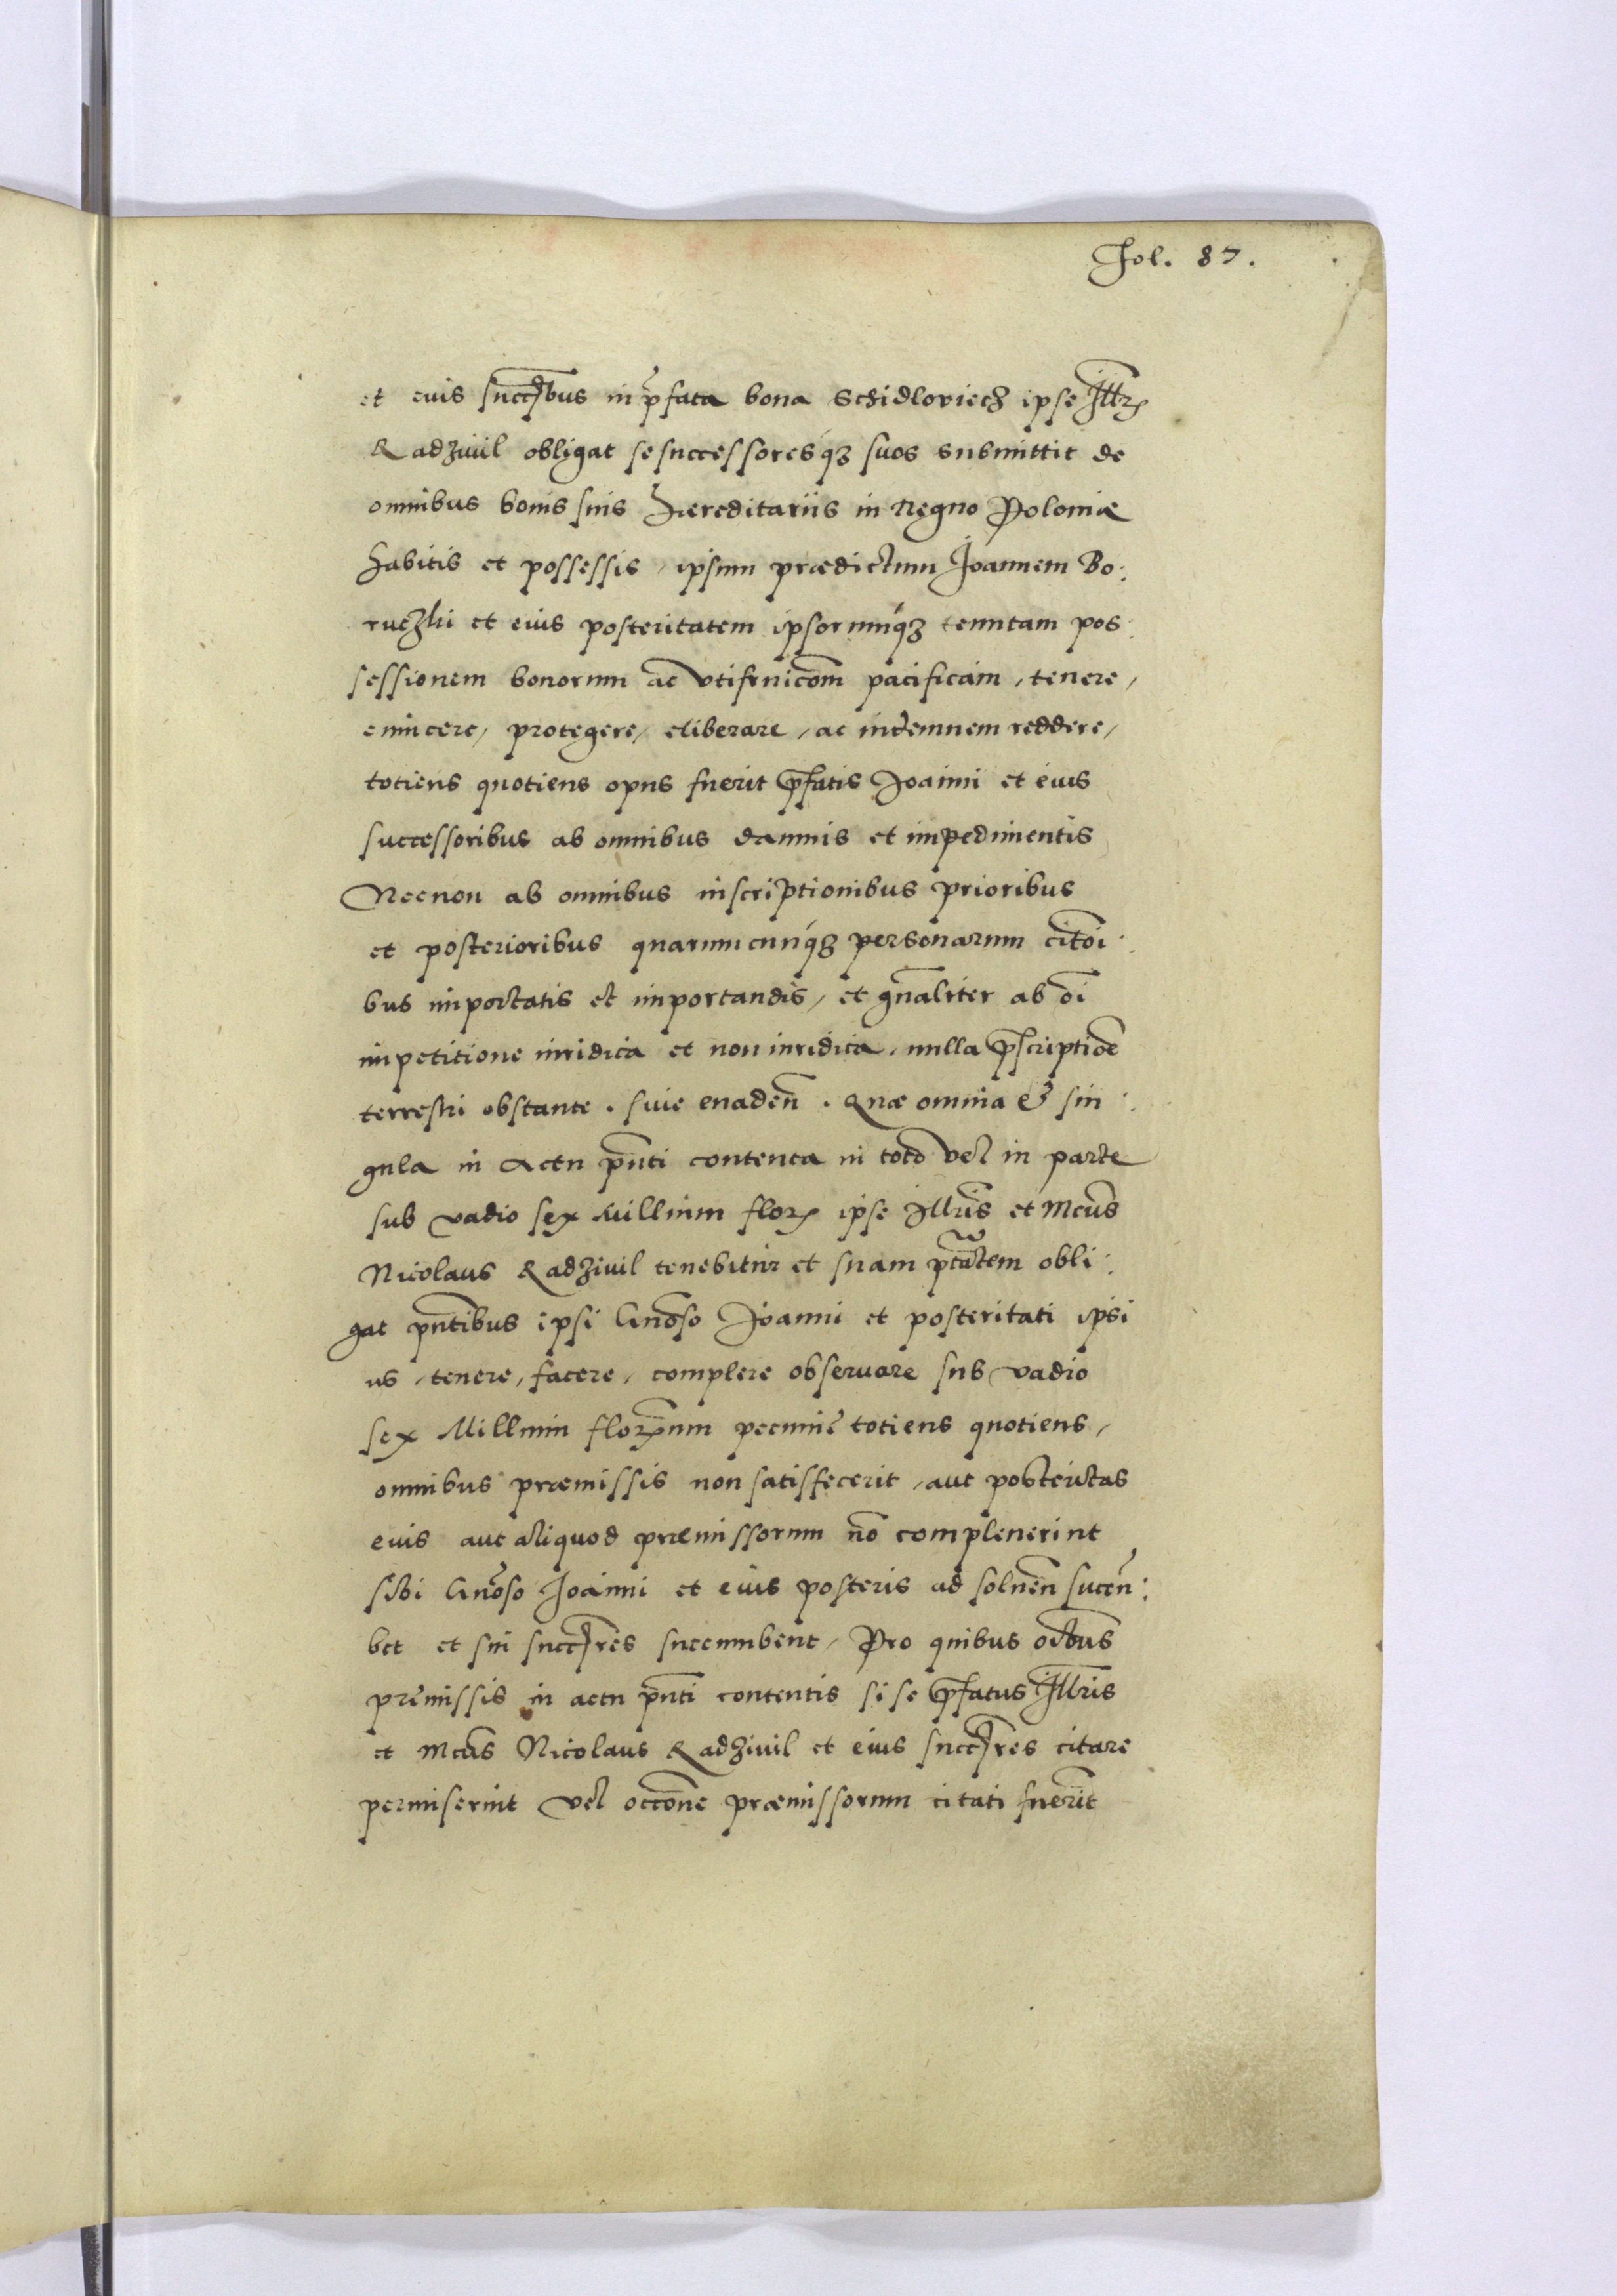 Fol. 87.
et eius succẽbus in p̃fata bona Schidloviecz ipse Illr̃
Radziuil obligat se successoresq́ȝ suos submittit de
omnibus bonis suis hereditariis in Regno Poloniæ
habitis et possessis, ipsum prædictum Joannem Bo:
ruczki et eius posteritatem ipsorumq́ȝ tenutam pos:
sessionem bonorum ac vtifruicõm pacificam, tenere,
euincere, protegere, eliberare, ac indemnem reddere,
totiens quotiens opus fuerit p̃fatis Joanni et eius
successoribus ab omnibus damnis et impedimentis
Necnon ab omnibus inscriptionibus prioribus
et posterioribus quarumcunq́ȝ personarum citõi:
bus importatis et importandis, et gñaliter ab õi
impetitione iuridica et non iuridica, nulla p̃scriptiõe
terrestri obstante, siue euadeñ. Quæ omnia & sin:
gula in actu p̃nti contenta in toto vel in parte
sub vadio sex Millium flor̃ ipse Illris̃ et Mcus̃
Nicolaus Radziuil tenebitur et suam p̃tãtem obli:
gat p̃ntibus ipsi Gnõso Joanni et posteritati ipsi
us, tenere, facere, complere obseruare sub vadio
sex Millium florẽnum pecuniẽ totiens quotiens,
omnibus præmissis non satisfecerit, aut posteritas
eius aut aliquod præmissorum nõ compleuerint
sibi Gnõso Joanni et eius posteris ad solueñ succũ:
bet et sui succr̃es succumbent, Pro quibus oĩbus
premissis in actu p̃nti contentis si se p̃fatus Illris̃
et Mcus̃ Nicolaus Radziuil et eius succr̃es citare
permiserint vel occõne præmissorum citati fuerint̃